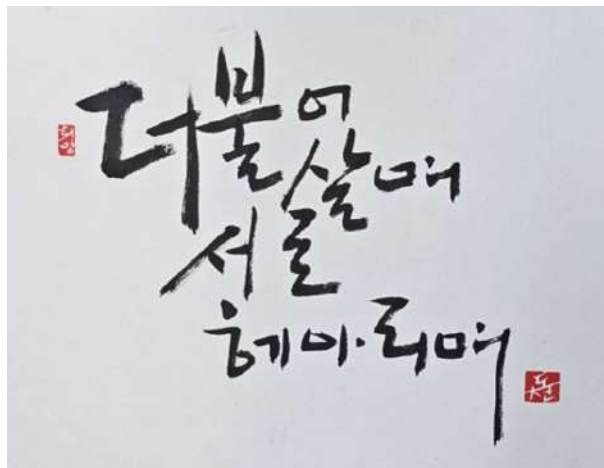 더불어
살며
서로
헤아리며